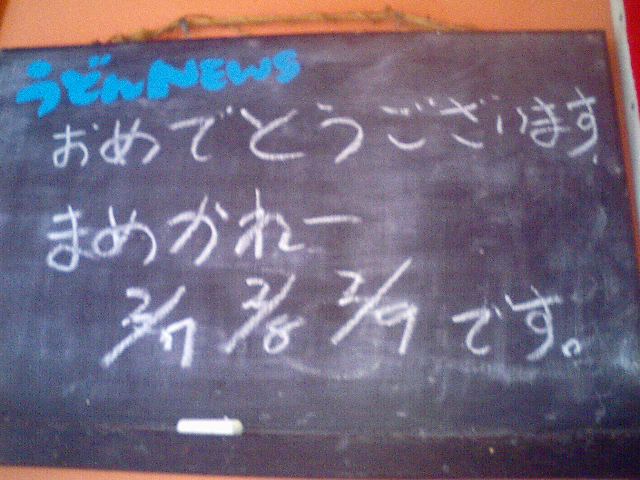 うどんNEWS
おめでとうございます
まめかれー
2/7 2/8 2/9 です。